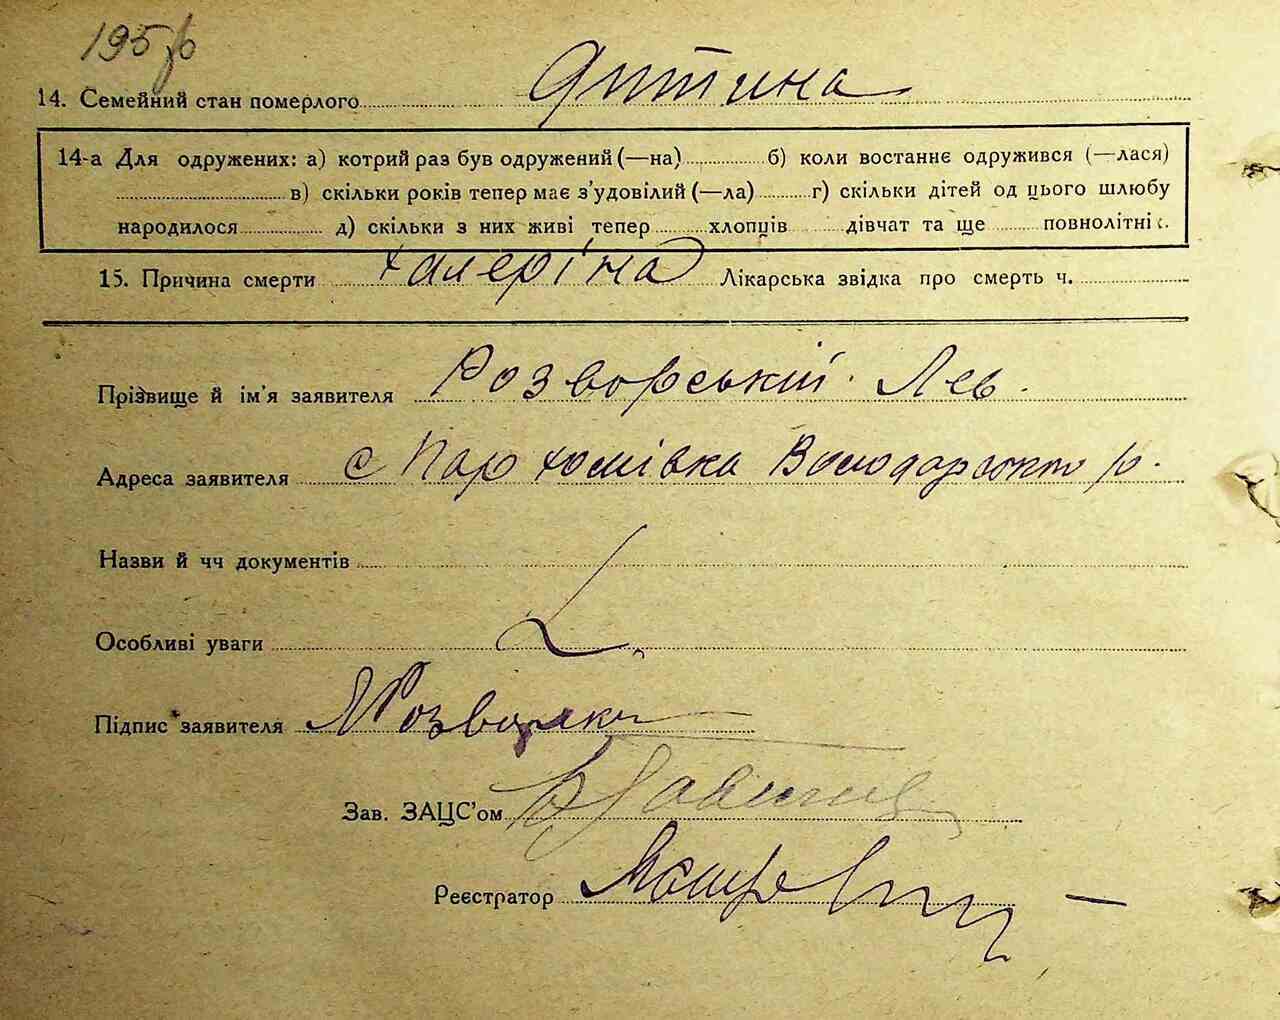 195
14. Семейний стан померлого дитина
14-а Для одружених: а) котрий раз був одружений (—на) б) коли востаннє одружився (—лася)
в) скільки років тепер має з'удовілий (—ла) г) скільки дітей од цього шлюбу
народилося д) скільки з них живі тепер хлопців дівчат та ще повнолітніх.
15. Причина смерти халеріна Лікарська звідка про смерть ч.
Прізвище й ім'я заявителя Розворський Лев.
Адреса заявителя с Пархомівка Володарського р.
Назви й чч документів
Особливі уваги
Підпис заявителя
Зав. ЗАЦС'ом
Реєстратор